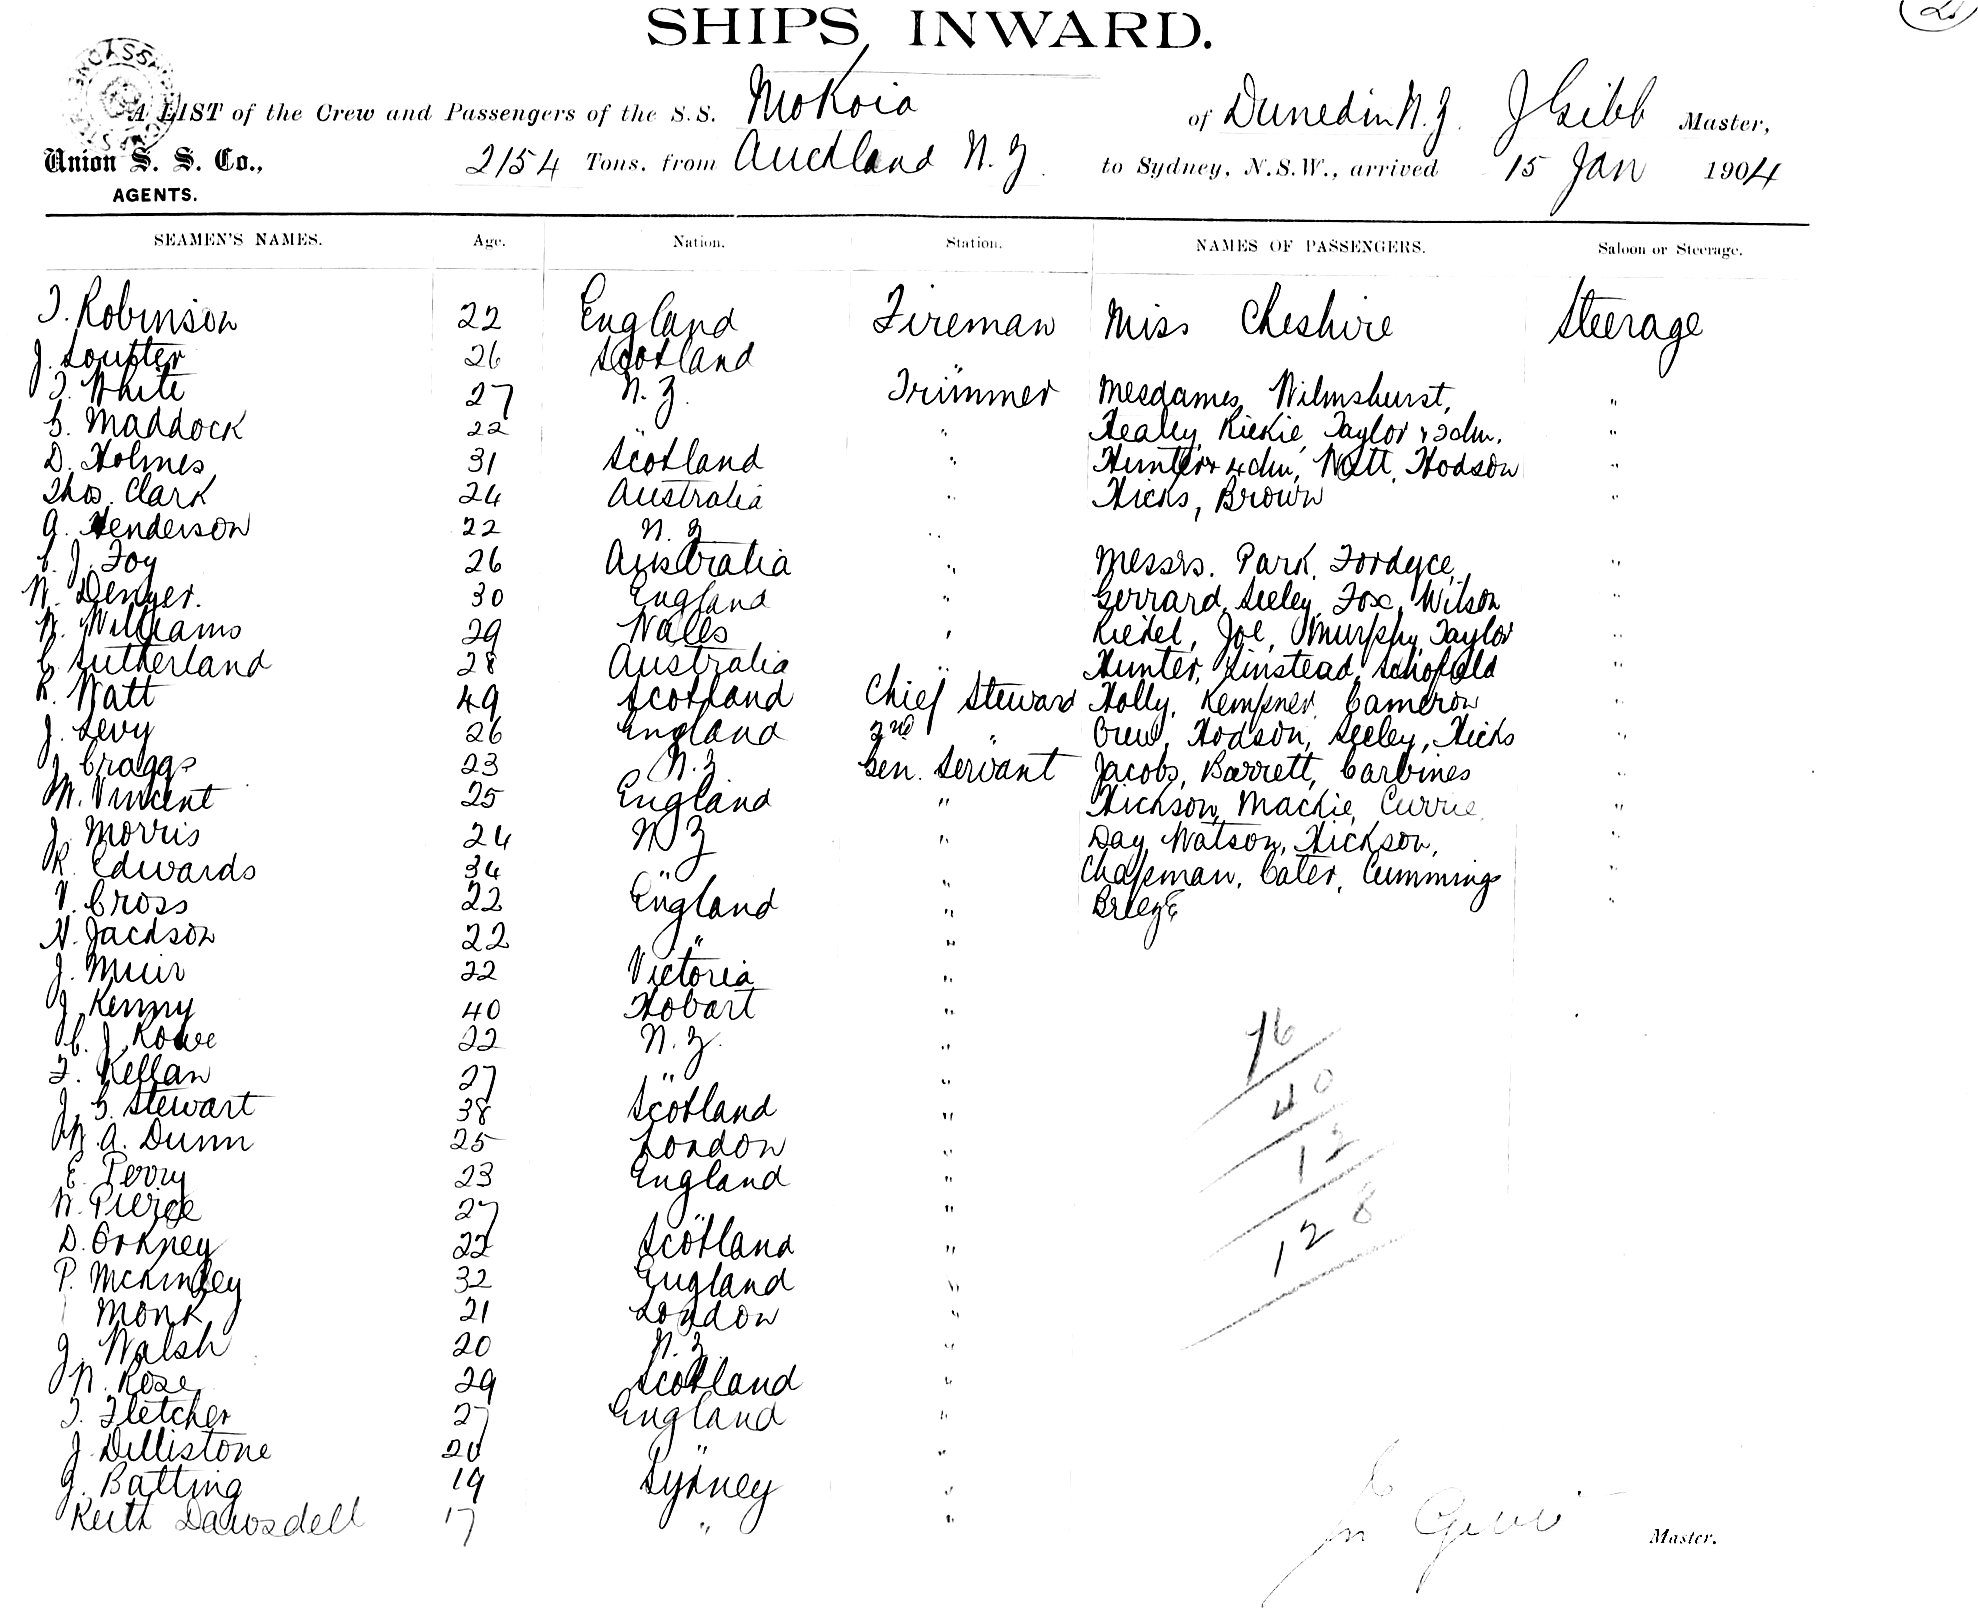 SHIPS INWARD.
A LIST of the Crew and Passengers of the S.S. Mokoia of Dunedin N.Z. J Gibb Master,
Union S. S. Co., 2154 Tons, from Auckland N.Z. to Sydney, N.S.W., arrived 15 Jan 1904
AGENTS.
SEAMEN'S NAMES. Age. Nation. Station. NAMES OF PASSENGERS. Saloon or Steerage.
T. Robinson 22 England Fireman Miss Cheshire Steerage
J. Soutter 26 Scotland "
T. White 27 N.Z. Trimmer Mesdames Wilmshurst, "
G. Maddock 22 " " Healey, Rickie, Taylor & 3 chn. "
D. Holmes 31 Scotland " Hunter & 4 chn, Watt, Hodson "
Thos. Clark 24 Australia " Hicks, Brown "
A. Henderson 22 N.Z "
C. J. Foy 26 Australia " Messrs. Park, Fordyce, "
W. Denyer. 30 England " Gerrard, Seeley, Fox, Wilson "
W. Williams 29 Wales " Riedel, Joe, Murphy, Taylor "
C. Sutherland 28 Australia " Hunter, Linstead, Schofield "
R. Watt 49 Scotland Chief Steward Holly, Kempner, Cameron "
J. Levy 26 England 2nd " Crew, Hodson, Seeley, Hicks "
J. Craggs 23 N.Z Gen. Servant Jacobs, Barrett, Carbines "
M. Vincent 25 England " Hickson, Mackie, Currie "
J. Morris 24 N Z " Day, Watson, Hickson, "
R. Edwards 34 " " Chapman, Cater, Cummings "
V. Cross 22 England " Breeze "
N. Jackson 22 " "
J. Muir 22 Victoria "
J. Kenny 40 Hobart "
C. J. Rowe 22 N.Z. "
F. Kellan 27 " "
J. G. Stewart 38 Scotland "
W. A. Dunn 25 London "
E. Perry 23 England "
W. Pierce 27 " "
D. Orkney 22 Scotland "
P. McKinley 32 England "
Monk 21 London "
J. Walsh 20 N.Z. "
W. Rose 29 Scotland "
T. Fletcher 27 England "
J. Dillistone 20 " "
J. Batting 19 Sydney "
Keith Dawsdell 17 " "
76
40
12
128
Master.